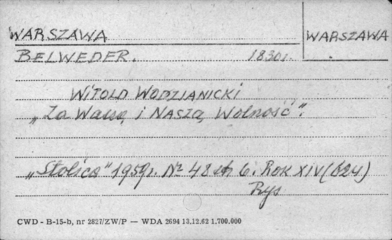 WARSZAWA WARSZAWA
BELWEDER. 1830r.
WITOLD WODZIANICKI
„Za Waszą i NASZĄ Wolność".
„Stolica" 1959r. Nr 42 str 6. ROK XIV (624)
Rys
CWD - B-15-b, nr 2827/ZW/P — WDA 2694 13.12.62 1.700.000